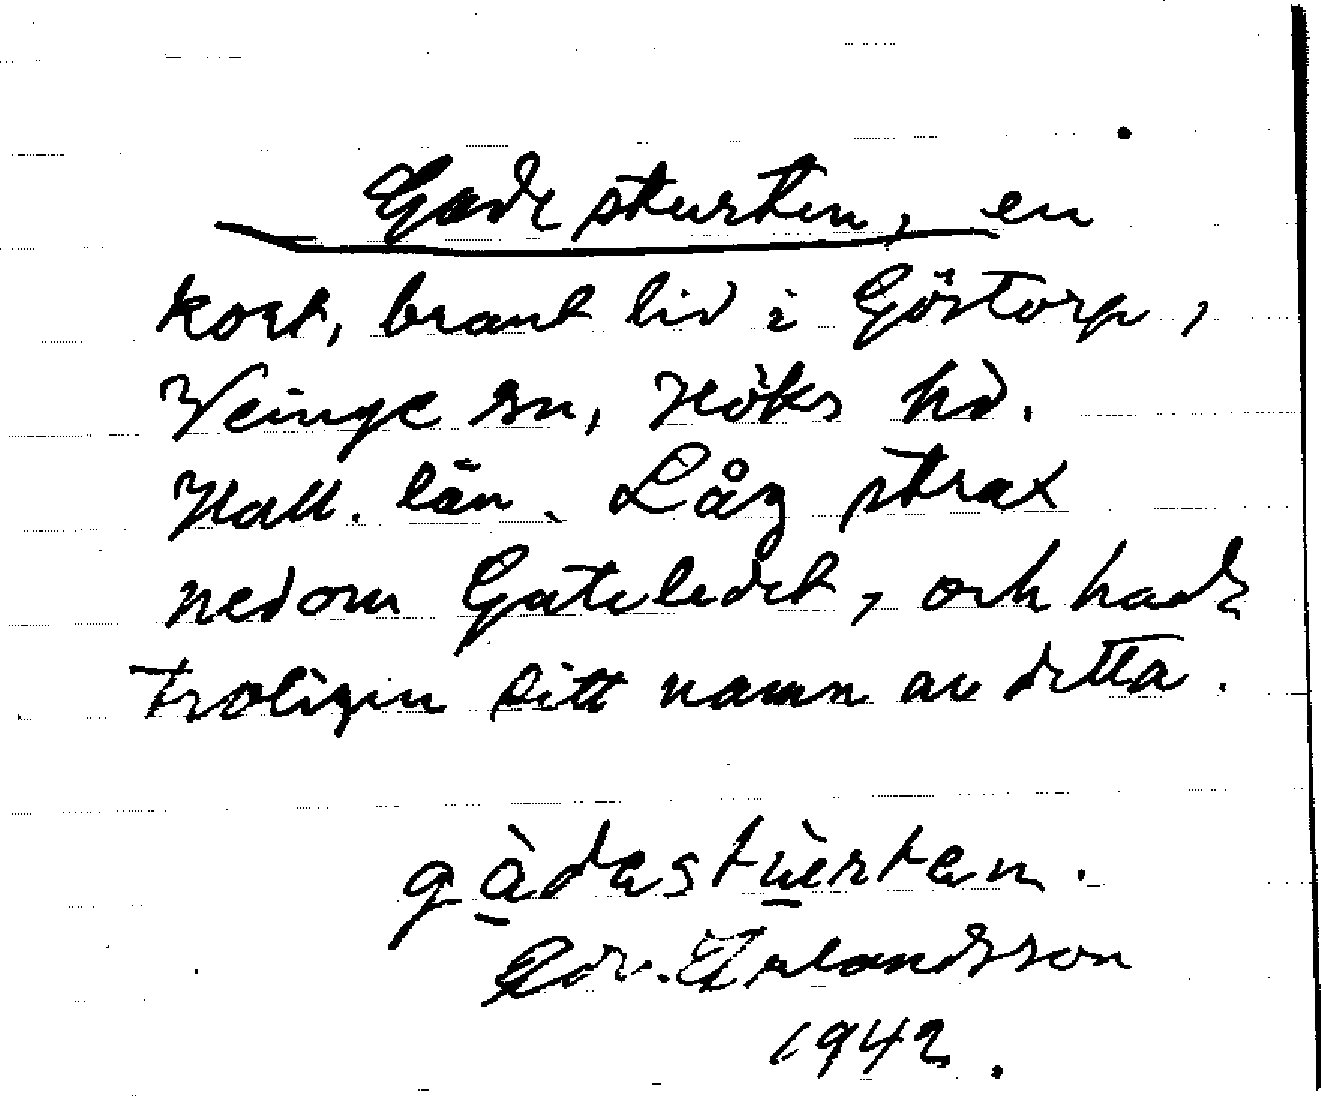 Gadesturten, en
kort, brant lid i Göstorp,
Veinge sn, Höks hd.
Hall. län. Låg strax
nedom Gateledet, och hade
troligen sitt namn av detta.
gàdastùrtan.
Edv. Erlandsson
1942.